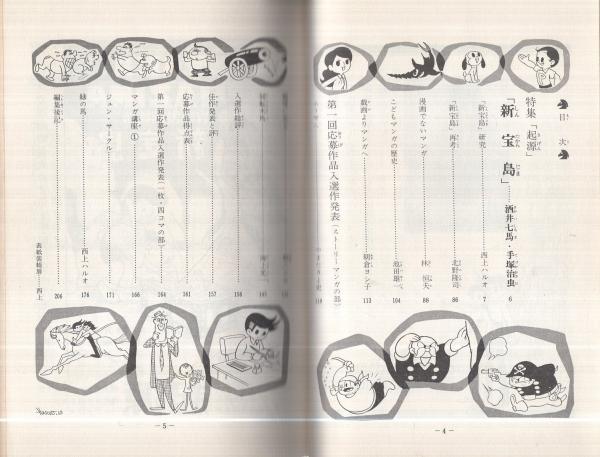 目次
特集「起源」
「新宝島」 酒井七馬・手塚治虫 6
「新宝島」研究 西上ハルオ 7
「新宝島」再考 北野隆司 86
漫画でないマンガ 林 88
こどもマンガの歴史 池田雄一 104
戯画よりマンガへ 朝倉ヨシ子 113
第一回応募作品入選作発表(ストーリーマンガの部)
入選作総評 156
佳作発表と評 157
応募作品得点表 161
第一回応募作品入選作発表(一枚・四コマの部) 164
マンガ講座① 166
ジュン・サークル 171
緑の馬 西上ハルオ 176
編集後記 206
表紙装幀扉 西上
—5—
—4—